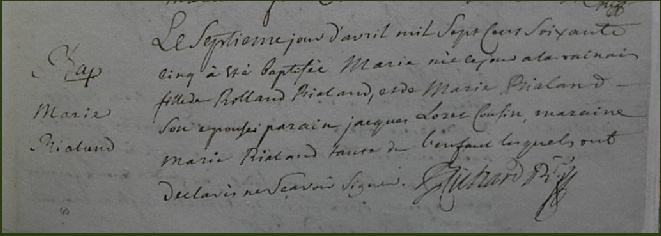 Le Septieme jour d'avril mil Sept Cens Soixante
Bap
cinq à eté baptisée Marie née ce jour a la
Marie
fille de Rolland Rialand, et de Marie Rialand
Rialand
Son epouse parain jacques Loret Cousin, maraine
Marie Rialand tante de l'enfant lesquels ont
declaré ne Scavoir Signer.